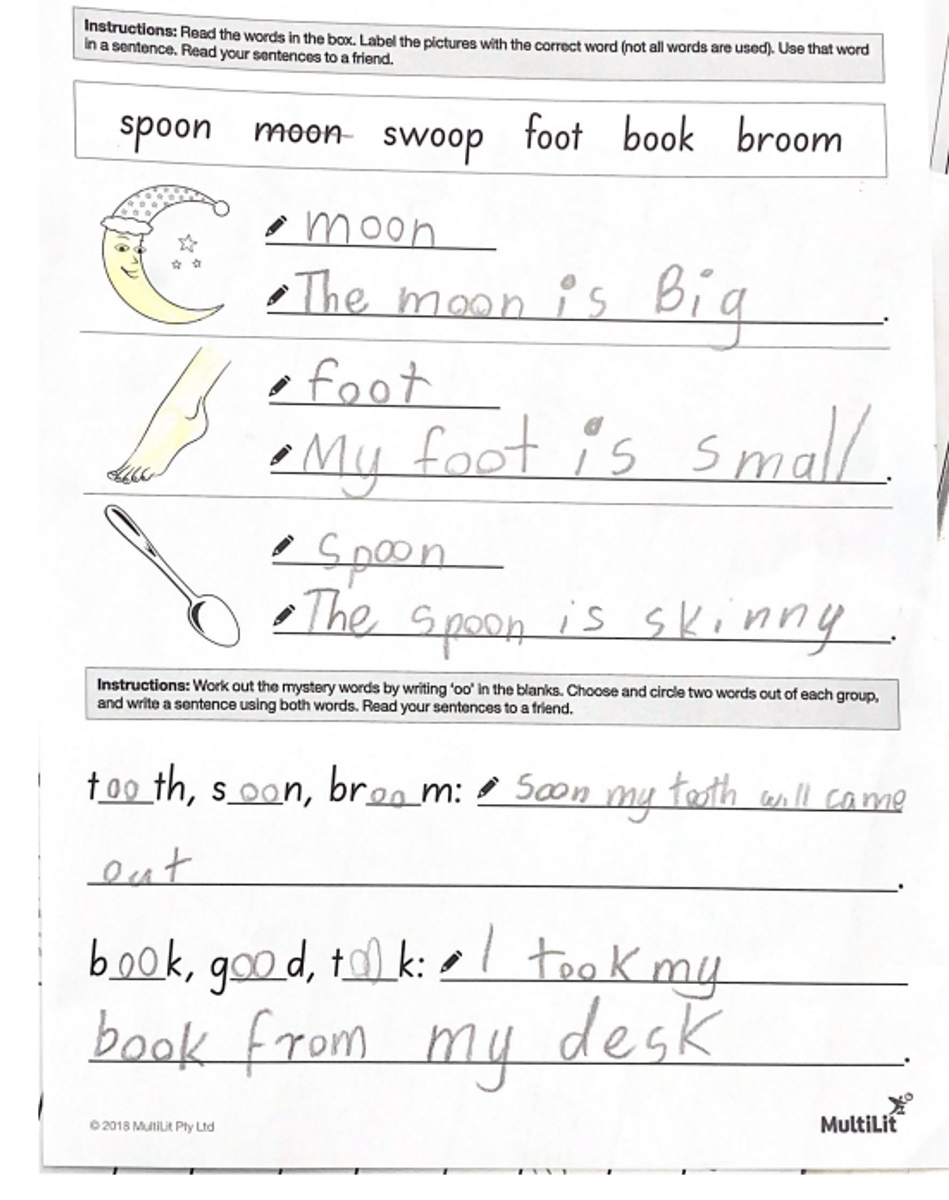 Instructions: Read the words in the box. Label the pictures with the correct word (not all words are used). Use that word
in a sentence. Read your sentences to a friend.
spoon moon swoop foot book broom
moon
The moon is Big.
foot
My foot is small.
spoon
The spoon is skinny.
Instructions: Work out the mystery words by writing 'oo' in the blanks. Choose and circle two words out of each group,
and write a sentence using both words. Read your sentences to a friend.
tooth, soon, broom: Soon my tooth will came
out.
book, good, took: I took my
book from my desk.
© 2018 MultiLit Pty Ltd
MultiLit